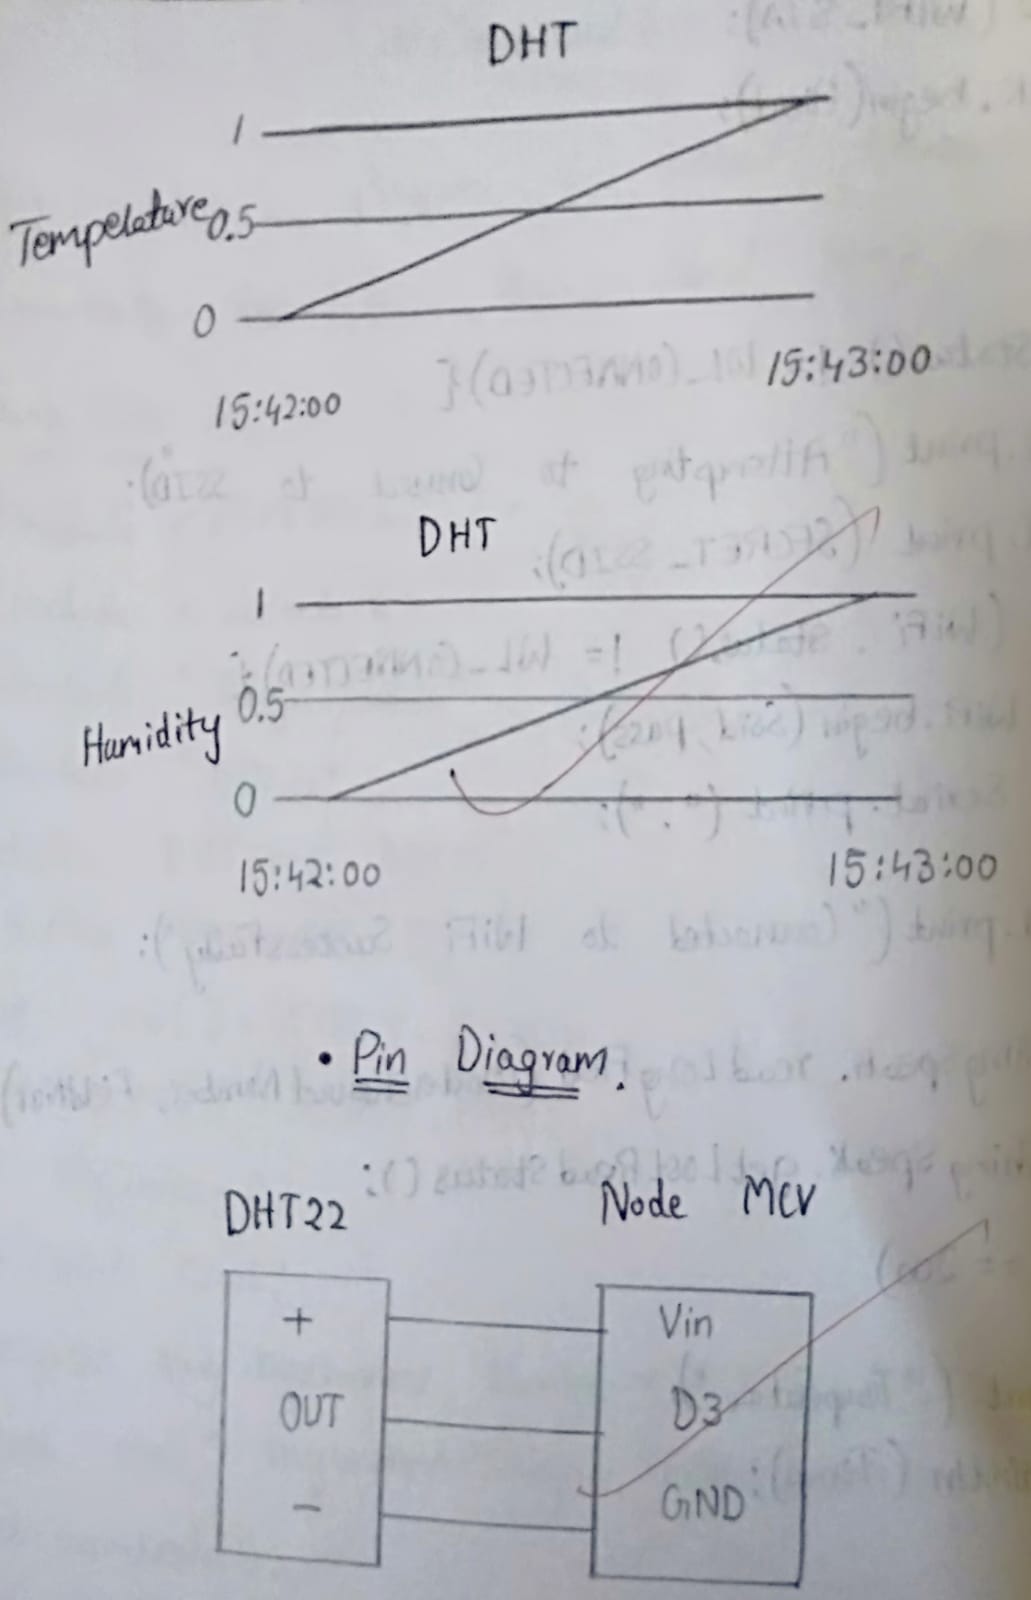 DHT
1
Tempelature 0.5
0
15:42:00 15:43:00
DHT
1
Humidity 0.5
0
15:42:00 15:43:00
• Pin Diagram.
DHT22 Node MCU
+ Vin
OUT D3
- GND